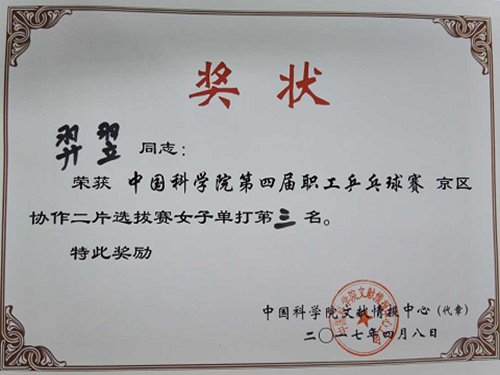 奖状
羿翌同志：
荣获 中国科学院第四届职工乒乓球赛 京区
协作二片选拔赛女子单打第三名。
特此奖励
中国科学院文献情报中心（代章）
二〇一七年四月八日